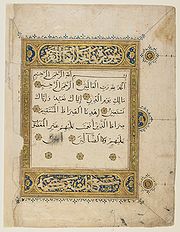 بسم الله الرحمن الرحيم
الحمد لله رب العالمين الرحمن الرحيم
ملك يوم الدين اياك نعبد واياك
نستعين اهدنا الصراط المستقيم
صراط الذين انعمت عليهم غير المغضوب
عليهم ولا الضالين